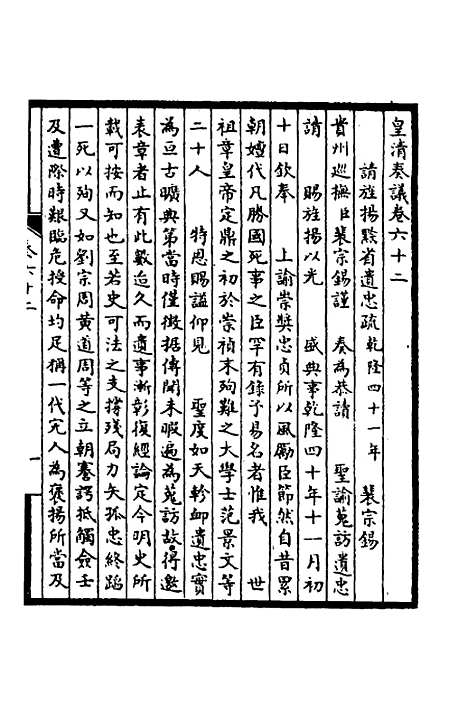 皇清奏議卷六十二
請旌揚黔省遺忠疏 乾隆四十一年 裴宗錫
貴州巡撫臣裴宗錫謹 奏為恭請 聖諭蒐訪遺忠
請 賜旌揚以光 盛典事乾隆四十年十一月初
十日欽奉 上諭崇獎忠貞所以風勵臣節然自昔累
朝嬗代凡勝國死事之臣罕有錄予易名者惟我 世
祖章皇帝定鼎之初於崇禎末殉難之大學士范景文等
二十人 特恩賜謚仰見 聖度如天軫卹遺忠實
為亘古曠典第當時僅徵據傳聞未暇遍為蒐訪故得邀
表章者止有此數迨久而遺事漸彰復經論定今明史所
載可按而知也至若史可法之支撐殘局力矢孤忠終蹈
一死以殉又如劉宗周黃道周等之立朝謇諤抵觸僉壬
及遭際時艱臨危授命均足稱一代完人為褒揚所當及
卷六十二
一